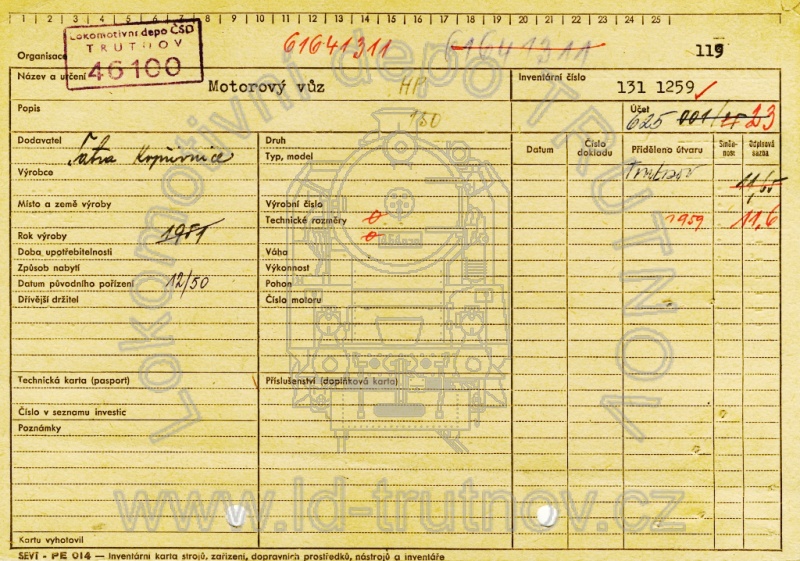 1 2 3 4 5 6 7 8 9 10 11 12 13 14 15 16 17 18 19 20 21 22 23 24 25 26 27 28 29 30
Lokomotivní depo ČSD
TRUTNOV
46100
Organisace 61641311 61641311 119
Název a určení Motorový vůz Inventární číslo 131 1259
Popis 130 Účet 625 001/ 23
Dodavatel Tatra Kopřivnice Druh Datum Číslo dokladu Přiděleno útvaru Směnnost Odpisová sazba
Výrobce Typ, model Trutnov
Místo a země výroby Výrobní číslo
Technické rozměry 0 1959 11,6
Rok výroby 1951 0
Doba upotřebitelnosti Váha
Způsob nabytí Výkonnost
Datum původního pořízení 12/50 Pohon
Dřívější držitel Číslo motoru
Technická karta (pasport) Příslušenství (doplňková karta)
Číslo v seznamu investic
Poznámky
Kartu vyhotovil
SEVT - PE 014 — Inventární karta strojů, zařízení, dopravních prostředků, nástrojů a inventáře
Lokomotivní depo TRUTNOV
www.ld-trutnov.cz